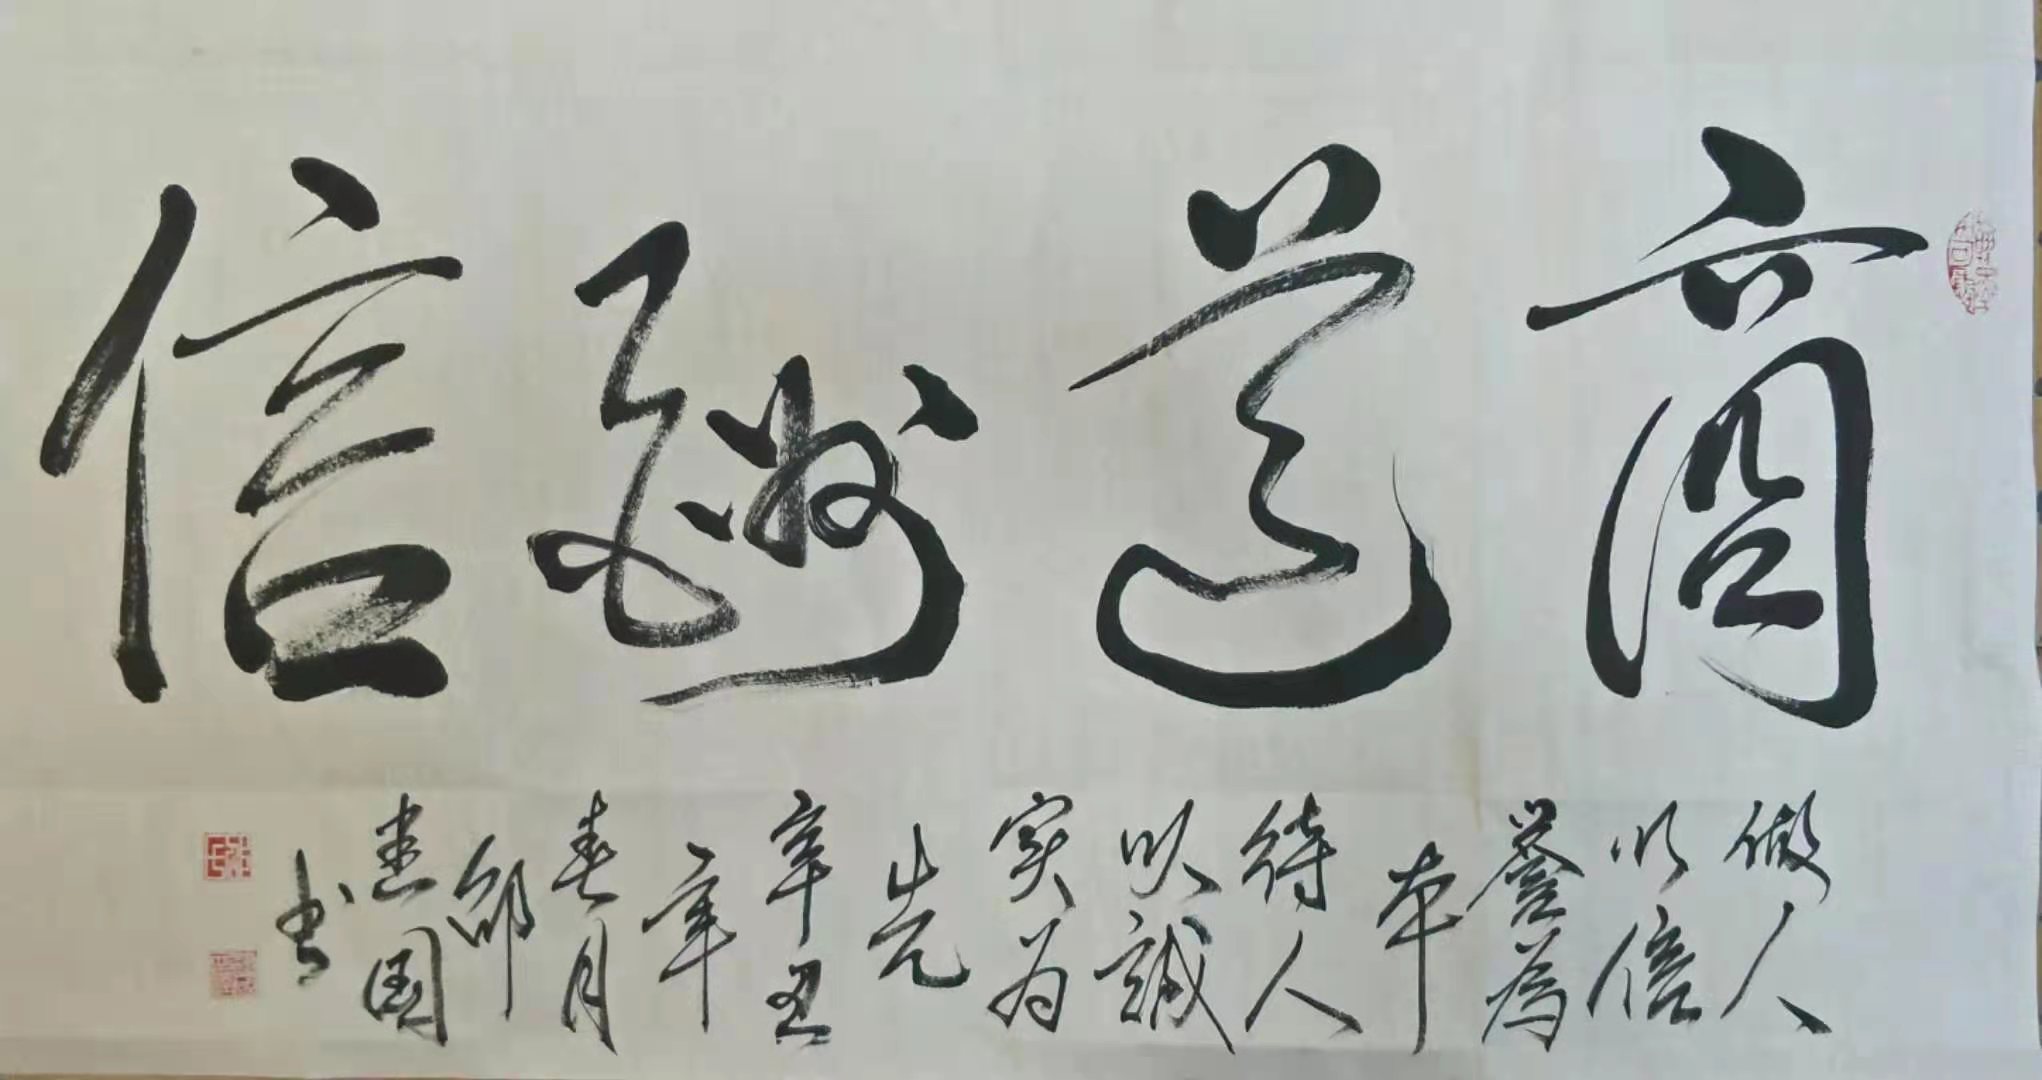 商道酬信
做人
以信
誉為
本
待人
以誠
实为
先
辛丑
年
春月
邱
建国
书